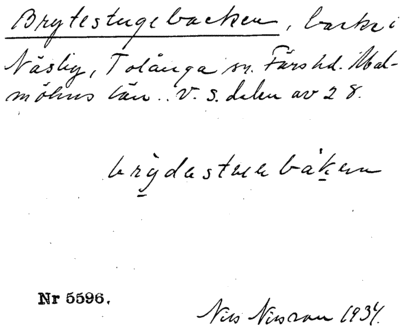 Brytestugebacken, backe i
Näsby, Tolånga sn. Färs hd. Mal-
möhus län. v. s. delen av 28.
bry̤dastuebåk̤en
Nr 5596.
Nils Nilsson 1934.